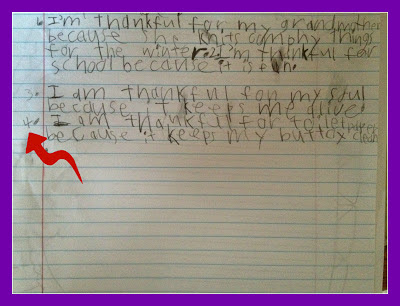 1. I'm thankful for my grandmother
because she knits comphy things
for the winter. 2. I'm thankful for
school because it is fun.
3. I am thankful for my soul
because it keeps me alive.
4. I am thankful for toilet paper
because it keeps my buttox clean